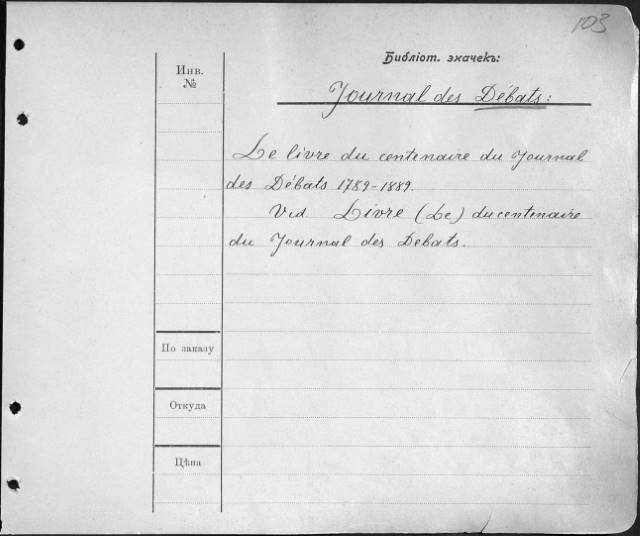 103
Библіот. значекъ:
Инв.
№
Journal des Débats:
Le livre du centenaire du Journal
des Débats 1789-1889.
Vid Livre (Le) du centenaire
du Journal des Debats.
По заказу
Откуда
Цѣна